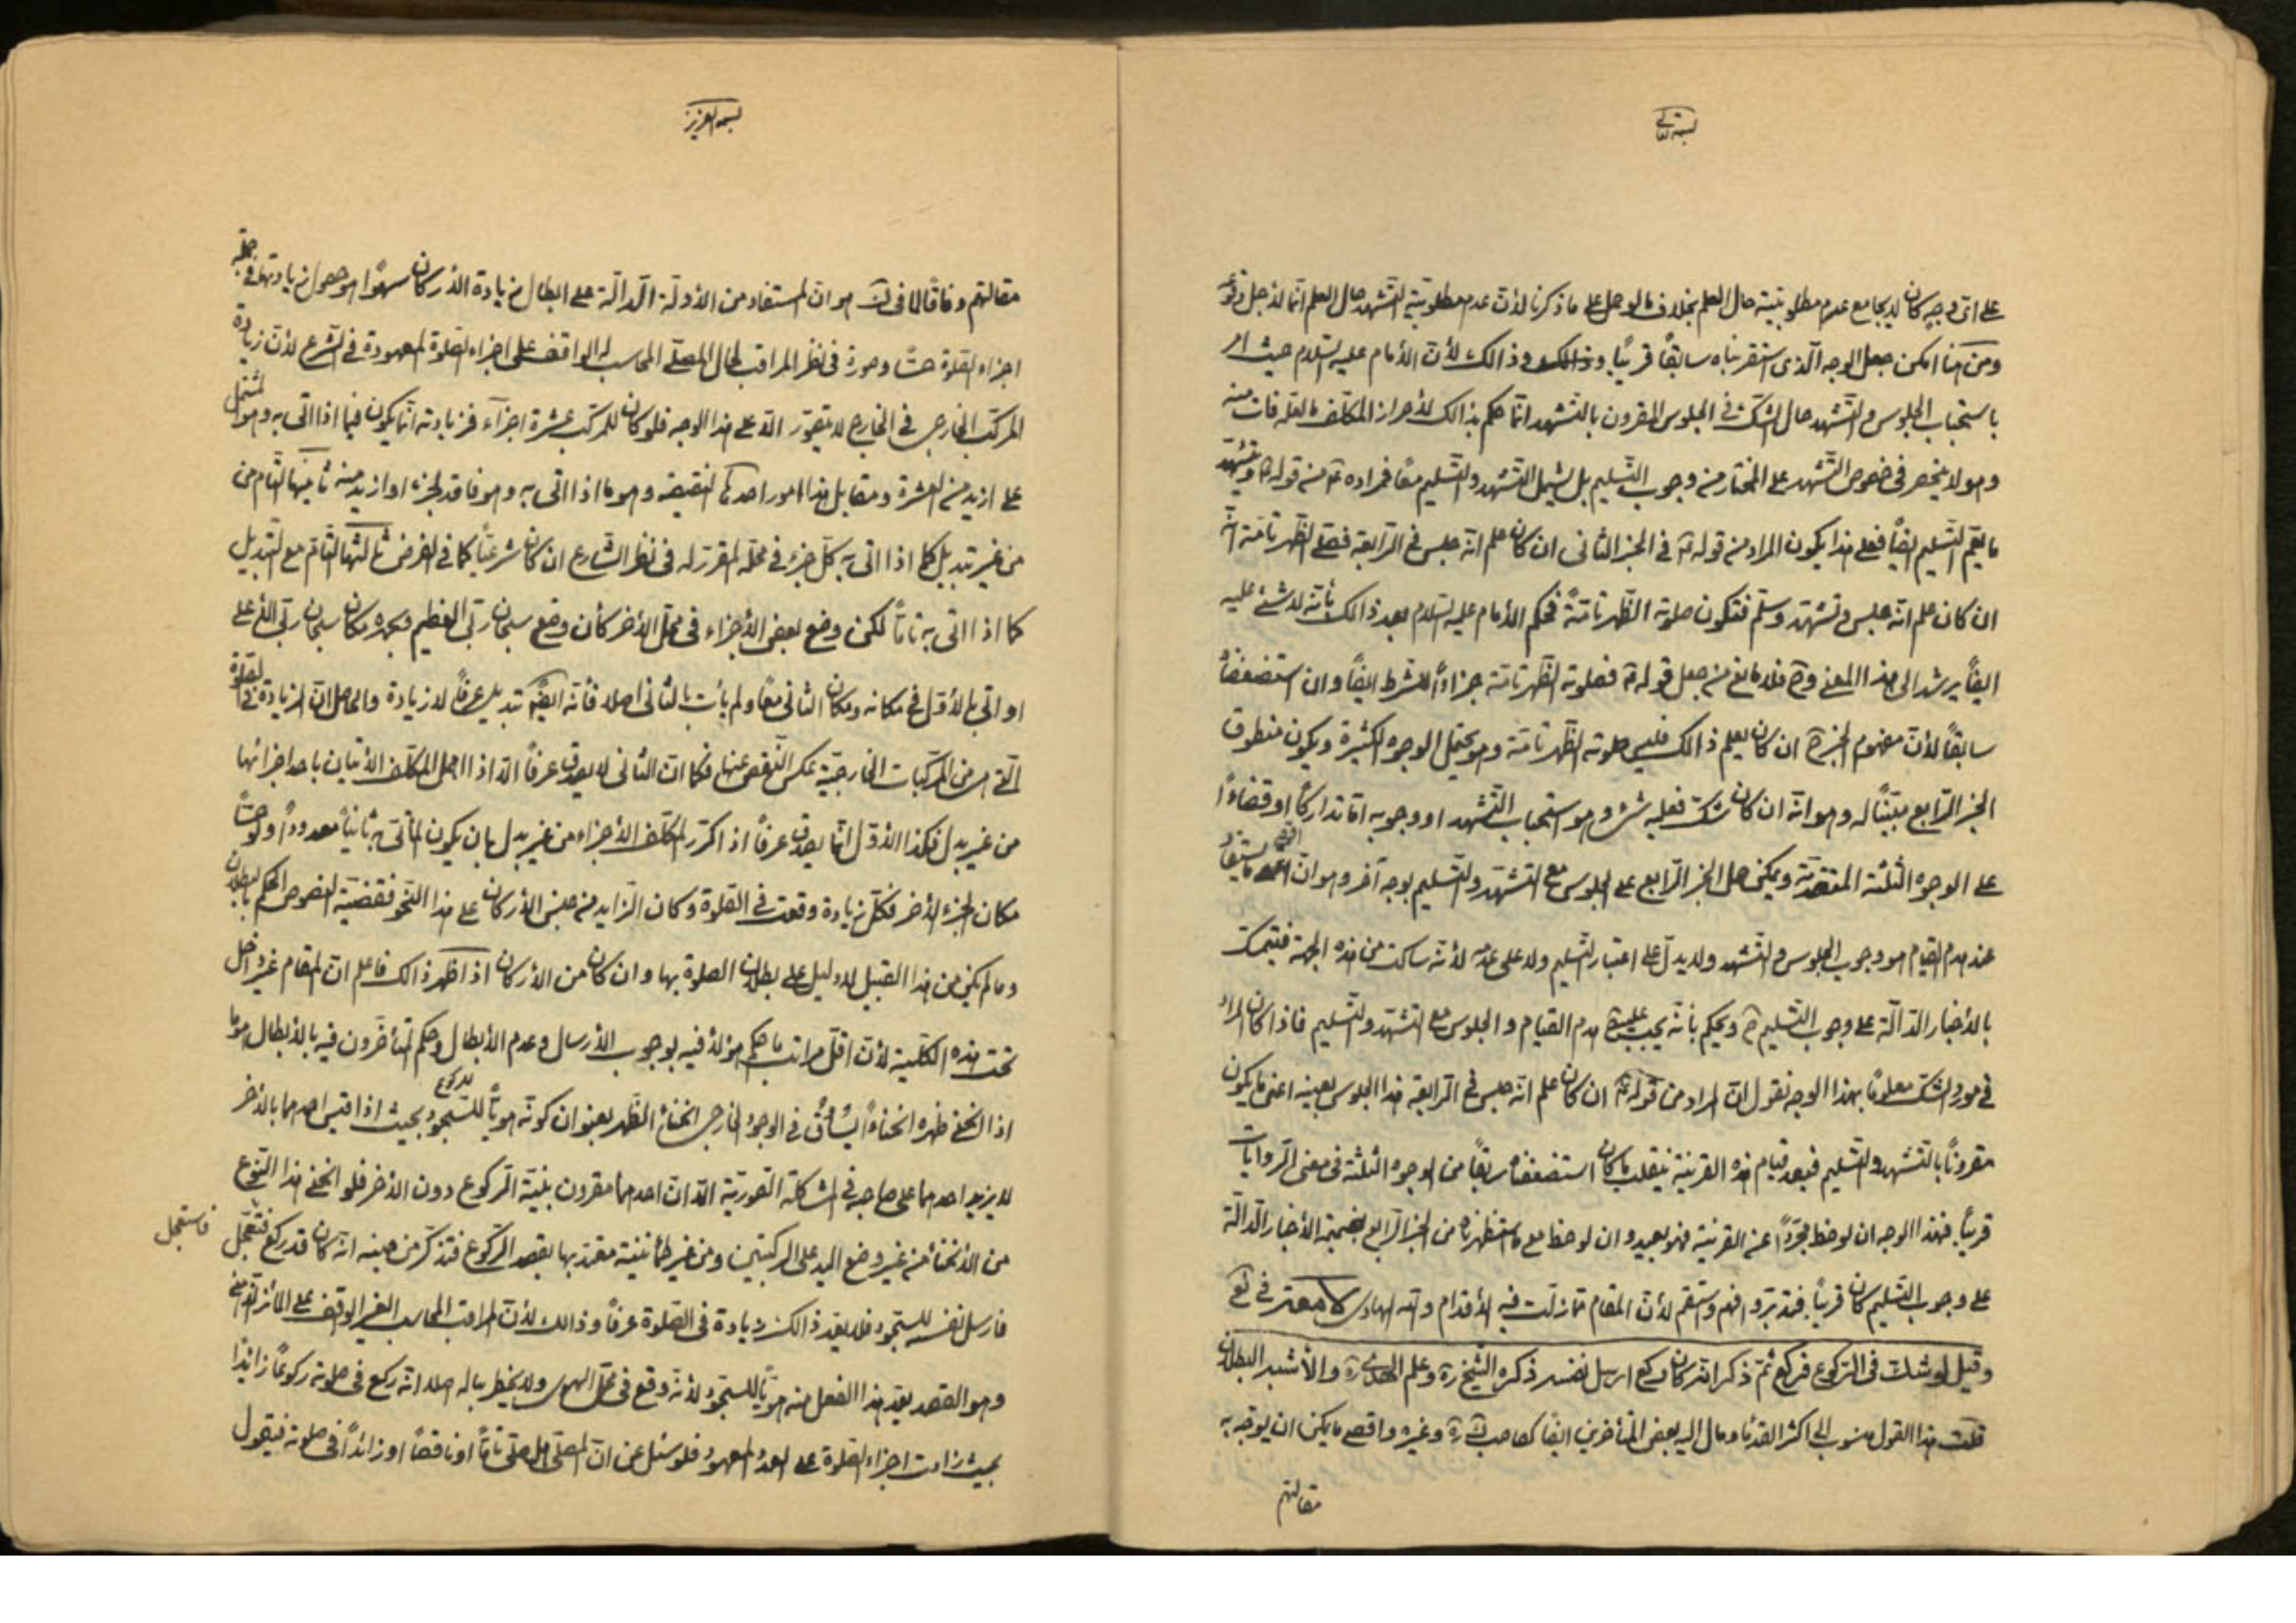 بسمه تعالى
على اىّ وجه كان لا يجامع عدم مطلوبيته حال العلم بخلاف ما لو حمل على ما ذكرنا لأنّ عدم مطلوبية التشهد حال العلم انّما لاجل وقوعه
ومن هنا امكن جعل الوجه الّذى استقربناه سابقاً قريباً وذالك لأنّ الأمام عليه السّلام حيث امر
باستحباب الجلوس والتّشهد حال الشكّ فى الجلوس المقرون بالتّشهد انّما حكم بذالك لأحراز المكلّف بالفعل فات منه
وهو لا ينحصر فى خصوص التّشهد على المختار من وجوب التّسليم بل يشمل التّشهد والتّسليم معاً فمراده من قوله ويتشهّد
ما يعمّ التّسليم ايضاً فعلى هذا يكون المراد من قوله فى الجزء الثانى ان كان علم انّه جلس فى الرّابعة فصلوة الظّهر تامّة انّه
ان كان علم انّه جلس وتشهّد وسلّم فتكون صلوته الظّهر تامّةً فحكم الأمام عليه السّلام بعد ذالك بأنّه لا شئ عليه
ايضاً يرشد الى هذا المعنى وح فلا مانع من جعل قوله فصلوته الظّهر تامّة جزاءً للشرط ايضاً وان استضعفناه
سابقاً لأنّ مفهوم الجزء ح ان كان لم يعلم ذالك فليس صلوته الظّهر تامّة وهو يحتمل الوجوه الكثيرة ويكون منطوق
الجزء الرّابع مبيّناً له وهو انّه ان كان شكّ فعليه شئ وهو استحباب التّشهد او وجوبه امّا تداركاً او قضاءً
على الوجوه الثلثة المتقدّمة ويمكن حمل الجزء الرّابع على الجلوس مع التشهّد والتّسليم بوجه آخر وهو انّ اقصى ما يستفاد
عند هدم القيام هو وجوب الجلوس والتّشهد ولا يدلّ على اعتبار التّسليم ولا على عدمه لأنّه ساكت من هذه الجهة فيتمسّك
بالأخبار الدّالّة على وجوب التّسليم ح ويحكم بأنّه يجب عليه ح هدم القيام والجلوس مع التشهّد والتّسليم فاذا كان المراد
فى مورد الشكّ معلوماً بهذا الوجه نقول انّ المراد من قوله ان كان علم انّه جلس فى الرّابعة هذا الجلوس بعينه اعنى ما يكون
مقروناً بالتّشهد والتّسليم فبعد قيام هذه القرينة ينقلب ما كان استضعفناه سابقاً من الوجوه الثلثة فى معنى الرّوايات
قريباً فهذا الوجه ان لوحظ مجرّداً عن القرينة فهو بعيد وان لوحظ مع ما استظهرناه من الجزء الرّابع بضميمة الأخبار الدّالّة
على وجوب التّسليم كان قريباً فتدبّر وافهم واستقم لأنّ المقام ممّا زلّت فيه الأقدام والله الهادى
وقيل لو شكّ فى الرّكوع فركع ثمّ ذكر انّه كان ركع ارسل نفسه ذكره الشّيخ ره وعلم الهدى ره والأشبه البطلان
قلت هذا القول منسوب الى اكثر القدماء ومال اليه بعض المتأخرين ايضاً كصاحب ك ره وغيره واقصى ما يمكن ان يوجّه به
مقالتهم
بسمه العزيز
مقالتهم وفاقاً لما فى ك هو انّ المستفاد من الأدلّة الدّالّة على ابطال زيادة الأركان سهواً هو حصول زيادتها فى جملة
اجزاء الصّلوة حسّاً وصورة فى نظر المراقب لحال المصلّى المحاسب له الواقف على اجزاء الصّلوة المعهودة فى الشّرع لأنّ زيادة
المركّب الخارجى فى الخارج لا يتصوّر الاّ على هذا الوجه فلو كان للمركّب عشرة اجزاء فزيادته انّما يكون فيما اذا اتى به وهو مشتمل
على ازيد من العشرة ومقابل هذا امور احدها النقيصة وهو ما اذا اتى به وهو فاقد لجزء او ازيد منه ثانيها التّام من
من غير تبديل كما اذا اتى بكلّ جزء فى محلّه المقرّر له فى نظر الشّارع ان كان شرعيّاً كما فى الفرض ثالثها التّام مع التّبديل
كما اذا اتى به تامّاً لكن وضع بعض الأجزاء فى محلّ الأخر كأن وضع سبحان ربّى العظيم وبحمده مكان سبحان ربّى الأعلى
او اتى بالأوّل فى مكانه ومكان الثانى معاً ولم يأت بالثّانى اصلا فأنّه ايضاً تبديل عرفاً لا زيادة والحاصل انّ الزيادة فى الصّلوة
الّتى هى من المركّبات الخارجيّة عكس النّقص عنها فكما انّ الثانى لا يصدق عرفاً الاّ اذا اهمل المكلّف الأتيان باحد اجزائها
من غير بدل فكذا الأوّل انّما يصدق عرفاً اذا كرّر المكلّف الأجزاء من غير بدل بان يكون المأتىّ به ثانياً معدوداً ولو حسّاً
مكان الجزء الأخر فكلّ زيادة وقعت فى الصّلوة وكان الزّايد من جنس الأركان على هذا النّحو فقضيّة النصوص الحكم بالبطلان
وما لم يكن من هذا القبيل لا دليل على بطلان الصلوة بها وان كان من الأركان اذا ظهر ذالك فاعلم انّ المقام غير داخل
تحت هذه الكلّية لأنّ اقلّ مراتب ما حكم هؤلاء فيه بوجوب الأرسال وعدم الأبطال وحكم المتأخرون فيه بالأبطال هو ما
اذا انحنى ظهره انحناءً يساوق فى الوجود الخارجى انحناء الظّهر بعنوان كونه هويّاً للسّجود بحيث اذا قيس احدهما بالأخر
للركوع
لا يزيد احدهما على صاحبه فى المشاكلة الصّورية الاّ انّ احدهما مقرون بنيّة الرّكوع دون الأخر فلو انحنى هذا النّوع
من الأنحناء من غير وضع اليد على الركبتين ومن غير طمأنينة معتدّ بها بقصد الرّكوع فتذكّر من حينه انّه كان قد ركع فتعجّل
فاستعجل
فارسل نفسه للسّجود فلا يعدّ ذالك زيادة فى الصّلوة عرفاً وذالك لأنّ المراقب المحاسب الغير الواقف على المائز بينهما
وهو القصد يعدّ هذا الفعل منه هويّاً للسّجود لأنّه وقع فى محلّ الهوى ولا يخطر بباله اصلا انّه ركع فى صلوته ركوعاً زائداً
بحيث زادت اجزاء الصّلوة على العدد المعهود فلو سئل عن انّ المصلّى هل صلّى تامّاً او ناقصاً او زائداً فى صلوته فيقول